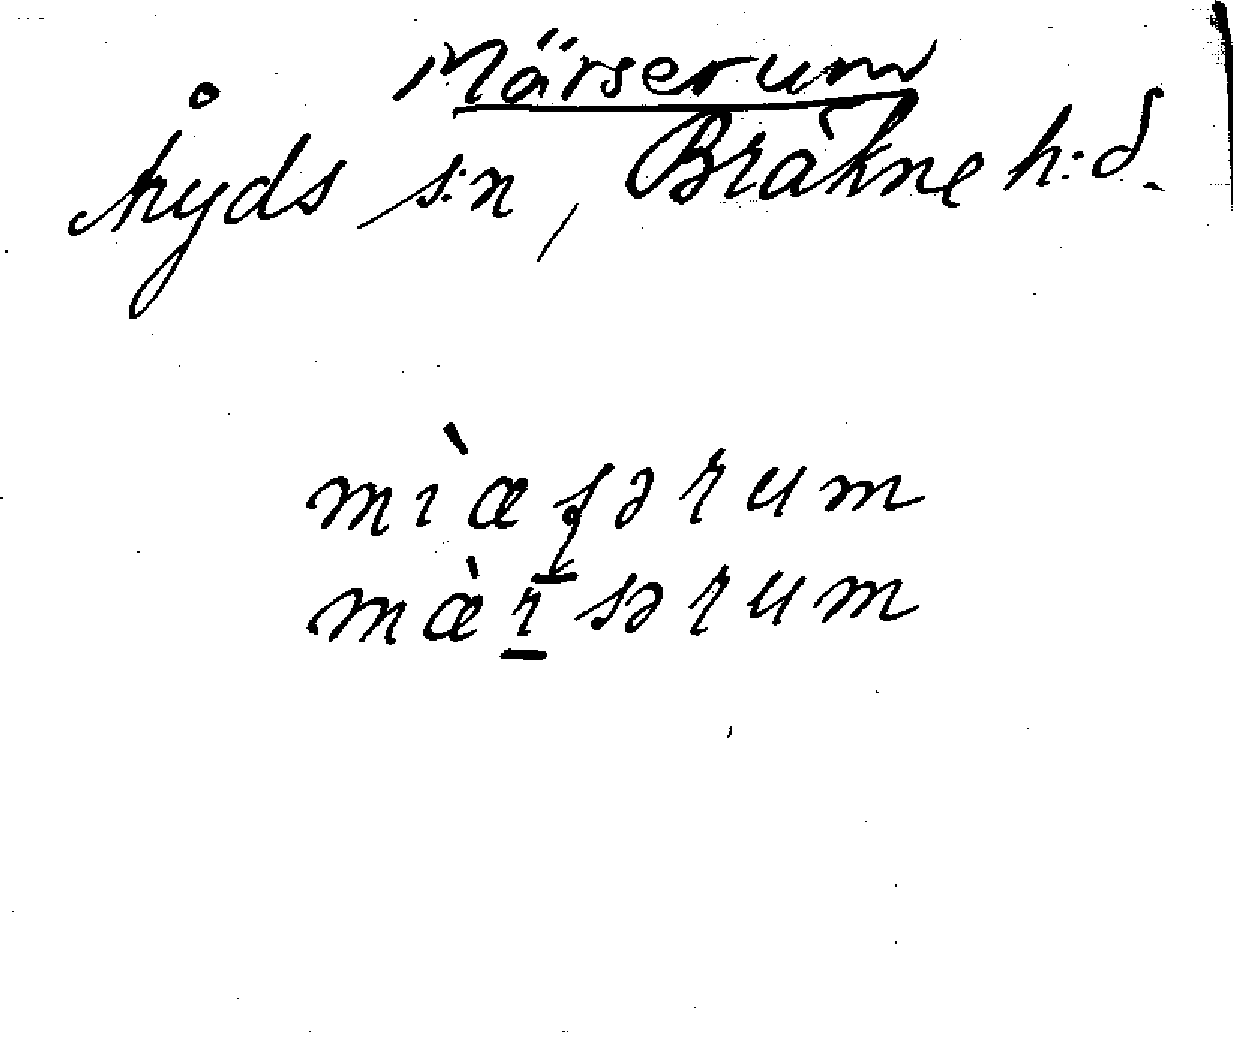 Märserum
Åryds s:n, Bräkne h:d.
mı̀æʂərum
mæ̀rsərum